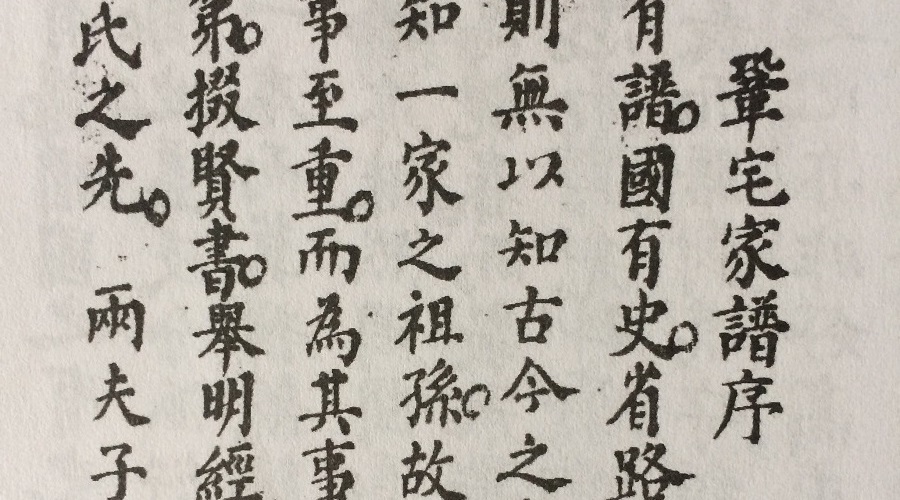 鞏宅家譜序
有譜。國有史。省路
則無以知古今之
知一家之祖孫。故
事至重。而為其事
第。掇賢書。舉明經
氏之先。兩夫子